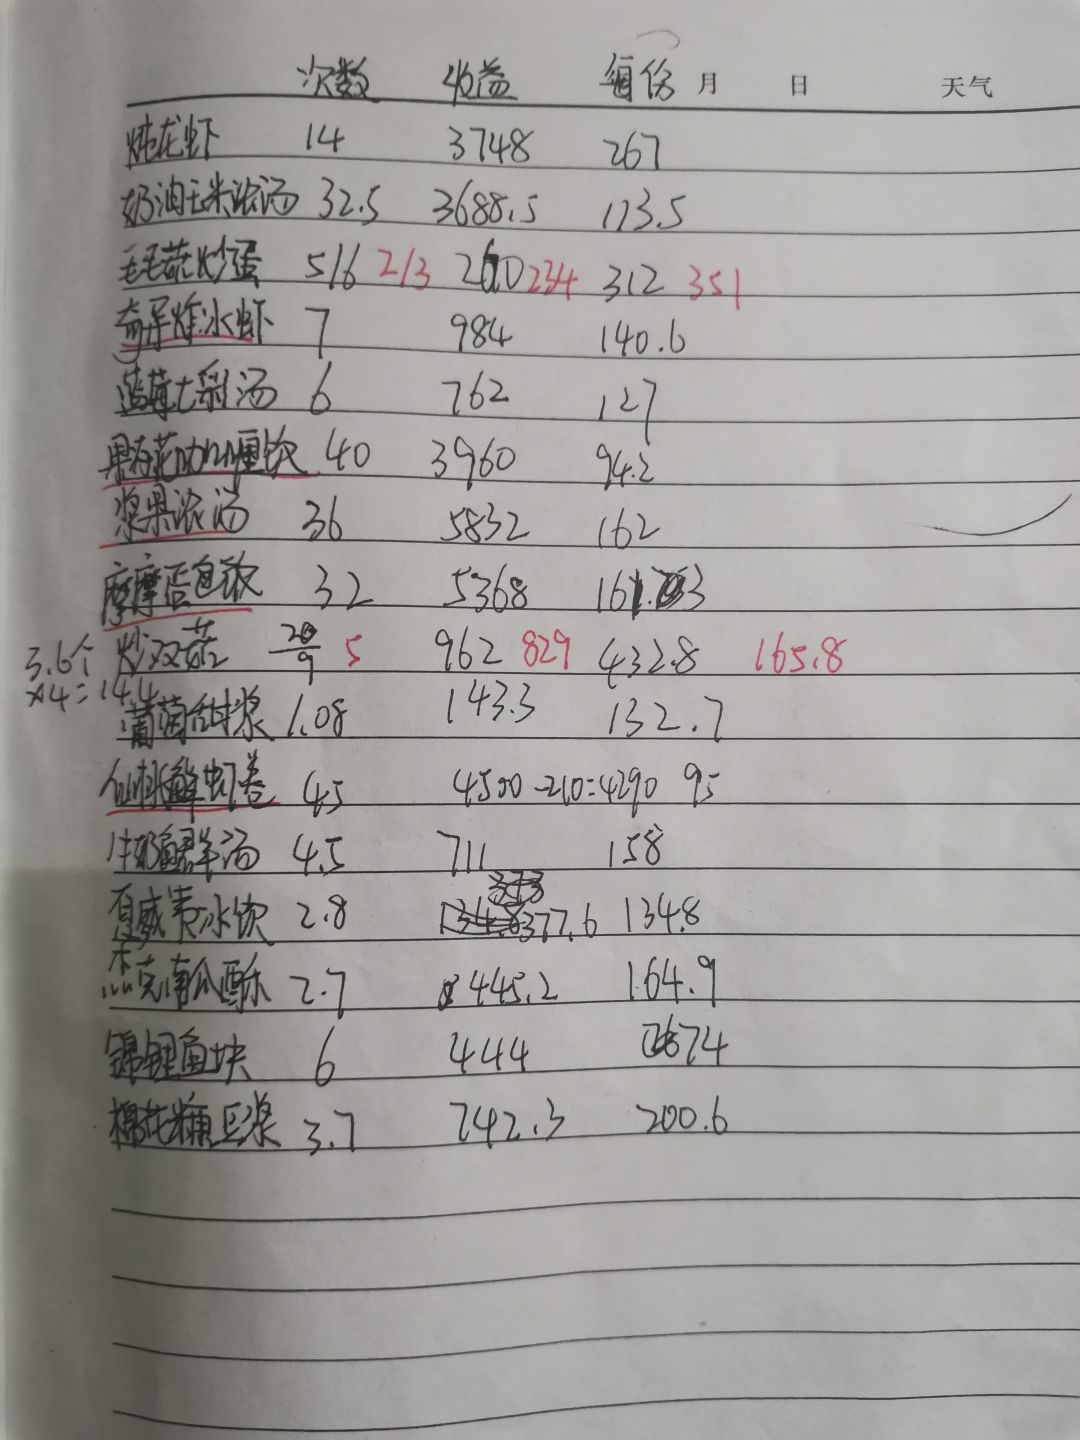 次数 收益 每份 月 日 天气
炖龙虾 14 3748 267
奶油玉米浓汤 32.5 3688.5 113.5
毛毛菇炒蛋 5/6 2/3 260 234 312 351
奇异炸冰虾 7 984 140.6
蓝莓七彩汤 6 762 127
40 3960 94.2
浆果浓汤 36 5832 162
摩摩蛋包饭 32 5368 161. 3
炒双菇 20/9 5 962 829 432.8 165.8
3.6个
×4=14.4
葡萄甜浆 1.08 143.3 132.7
仙桃鲜虾卷 45 4500-210=4290 95
牛奶鱼羊汤 4.5 711 158
夏威夷冰饮 2.8 377.6 134.8
杰克南瓜酥 2.7 445.2 164.9
锦鲤鱼块 6 444 74
棉花糖豆浆 3.7 742.3 200.6